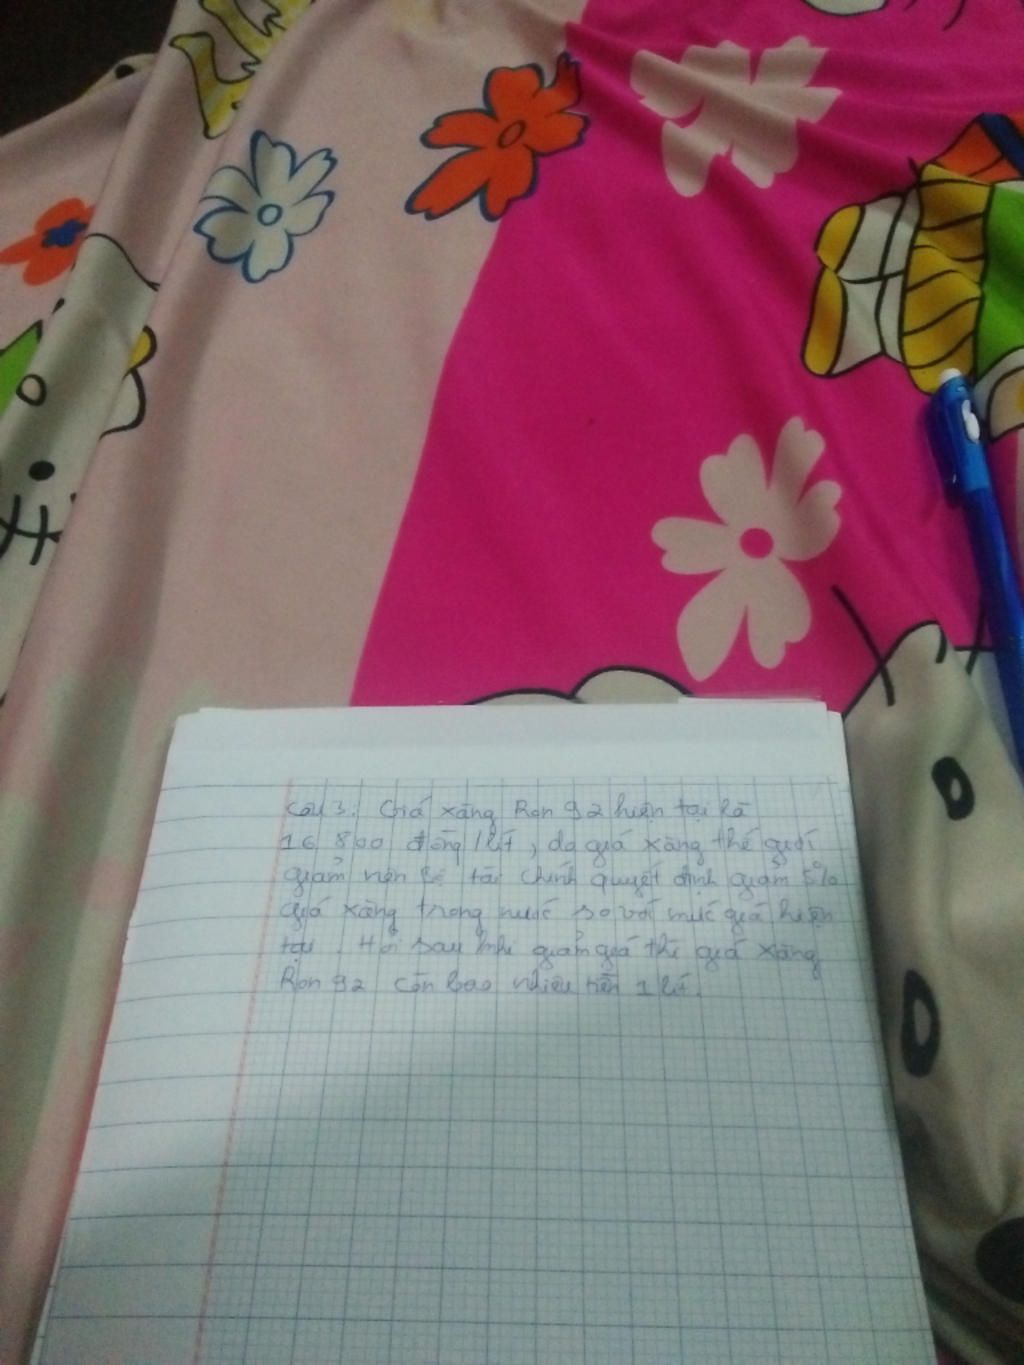 Câu 3: Giá xăng Ron 92 hiện tại là
16 800 đồng/lít, do giá xăng thế giới
giảm nên Bộ tài chính quyết định giảm 5%
giá xăng trong nước so với mức giá hiện
tại. Hỏi sau khi giảm giá thì giá xăng
Ron 92 còn bao nhiêu tiền 1 lít.